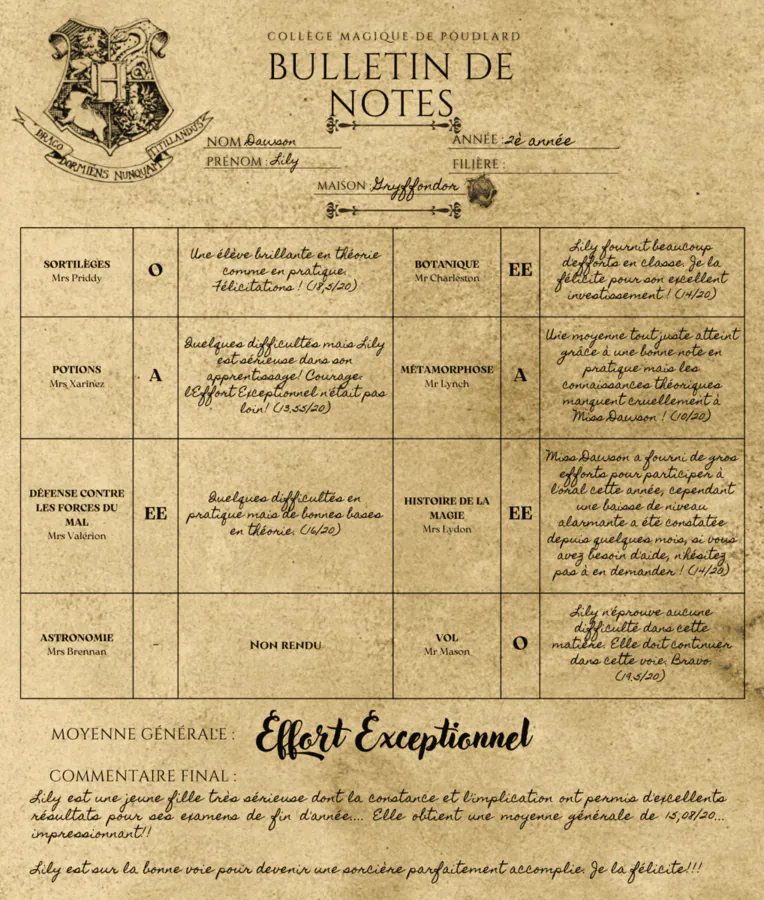 COLLÈGE MAGIQUE DE POUDLARD
BULLETIN DE
NOTES
H
DRACO
DORMIENS NUNQUAM
TITILLANDUS
NOM Dawson
ANNÉE : 2è année
PRÉNOM : Lily
FILIÈRE :
MAISON : Gryffondor
SORTILÈGES
Mrs Priddy
O
Une élève brillante en théorie
comme en pratique.
Félicitations ! (18,5/20)
BOTANIQUE
Mr Charleston
EE
Lily fournit beaucoup
d'efforts en classe. Je la
félicite pour son excellent
investissement ! (14/20)
POTIONS
Mrs Xarinez
A
Quelques difficultés mais Lily
est sérieuse dans son
apprentissage! Courage,
l'Effort Exceptionnel n'était pas
loin! (13,55/20)
MÉTAMORPHOSE
Mr Lynch
A
Une moyenne tout juste atteint
grâce à une bonne note en
pratique mais les
connaissances théoriques
manquent cruellement à
Miss Dawson ! (10/20)
DÉFENSE CONTRE
LES FORCES DU
MAL
Mrs Valérion
EE
Quelques difficultés en
pratique mais de bonnes bases
en théorie. (16/20)
HISTOIRE DE LA
MAGIE
Mrs Lydon
EE
Miss Dawson a fourni de gros
efforts pour participer à
l'oral cette année, cependant
une baisse de niveau
alarmante a été constatée
depuis quelques mois, si vous
avez besoin d'aide, n'hésitez
pas à en demander ! (14/20)
ASTRONOMIE
Mrs Brennan
-
NON RENDU
VOL
Mr Mason
O
Lily n'éprouve aucune
difficulté dans cette
matière. Elle doit continuer
dans cette voie. Bravo.
(19,5/20)
MOYENNE GÉNÉRALE : Effort Exceptionnel
COMMENTAIRE FINAL :
Lily est une jeune fille très sérieuse dont la constance et l'implication ont permis d'excellents
résultats pour ses examens de fin d'année.... Elle obtient une moyenne générale de 15,08/20...
impressionnant!!
Lily est sur la bonne voie pour devenir une sorcière parfaitement accomplie. Je la félicite!!!